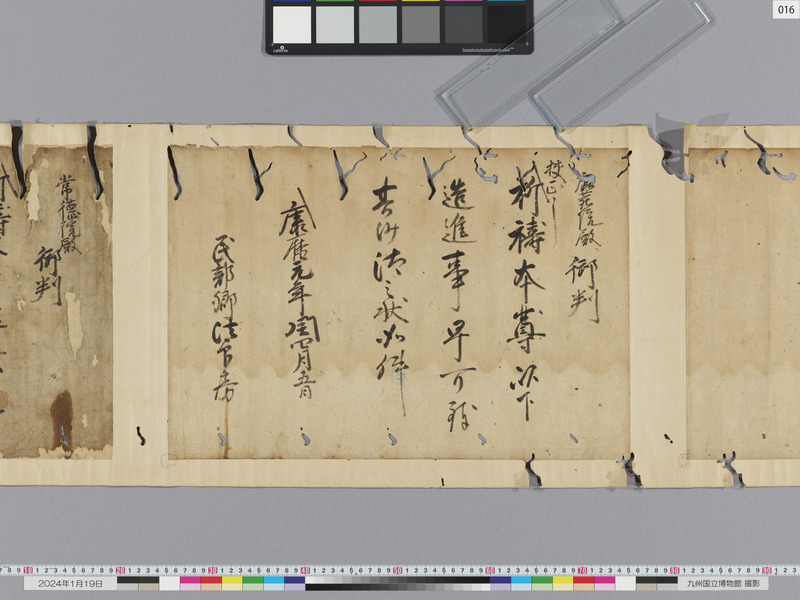 016
鹿苑院殿 御判
校正了
祈禱本尊以下
造進事早可致
其沙汰之状如件
康暦元年閏四月五日
民部卿法印房
常徳院殿 御判
2024年1月19日
九州国立博物館 撮影